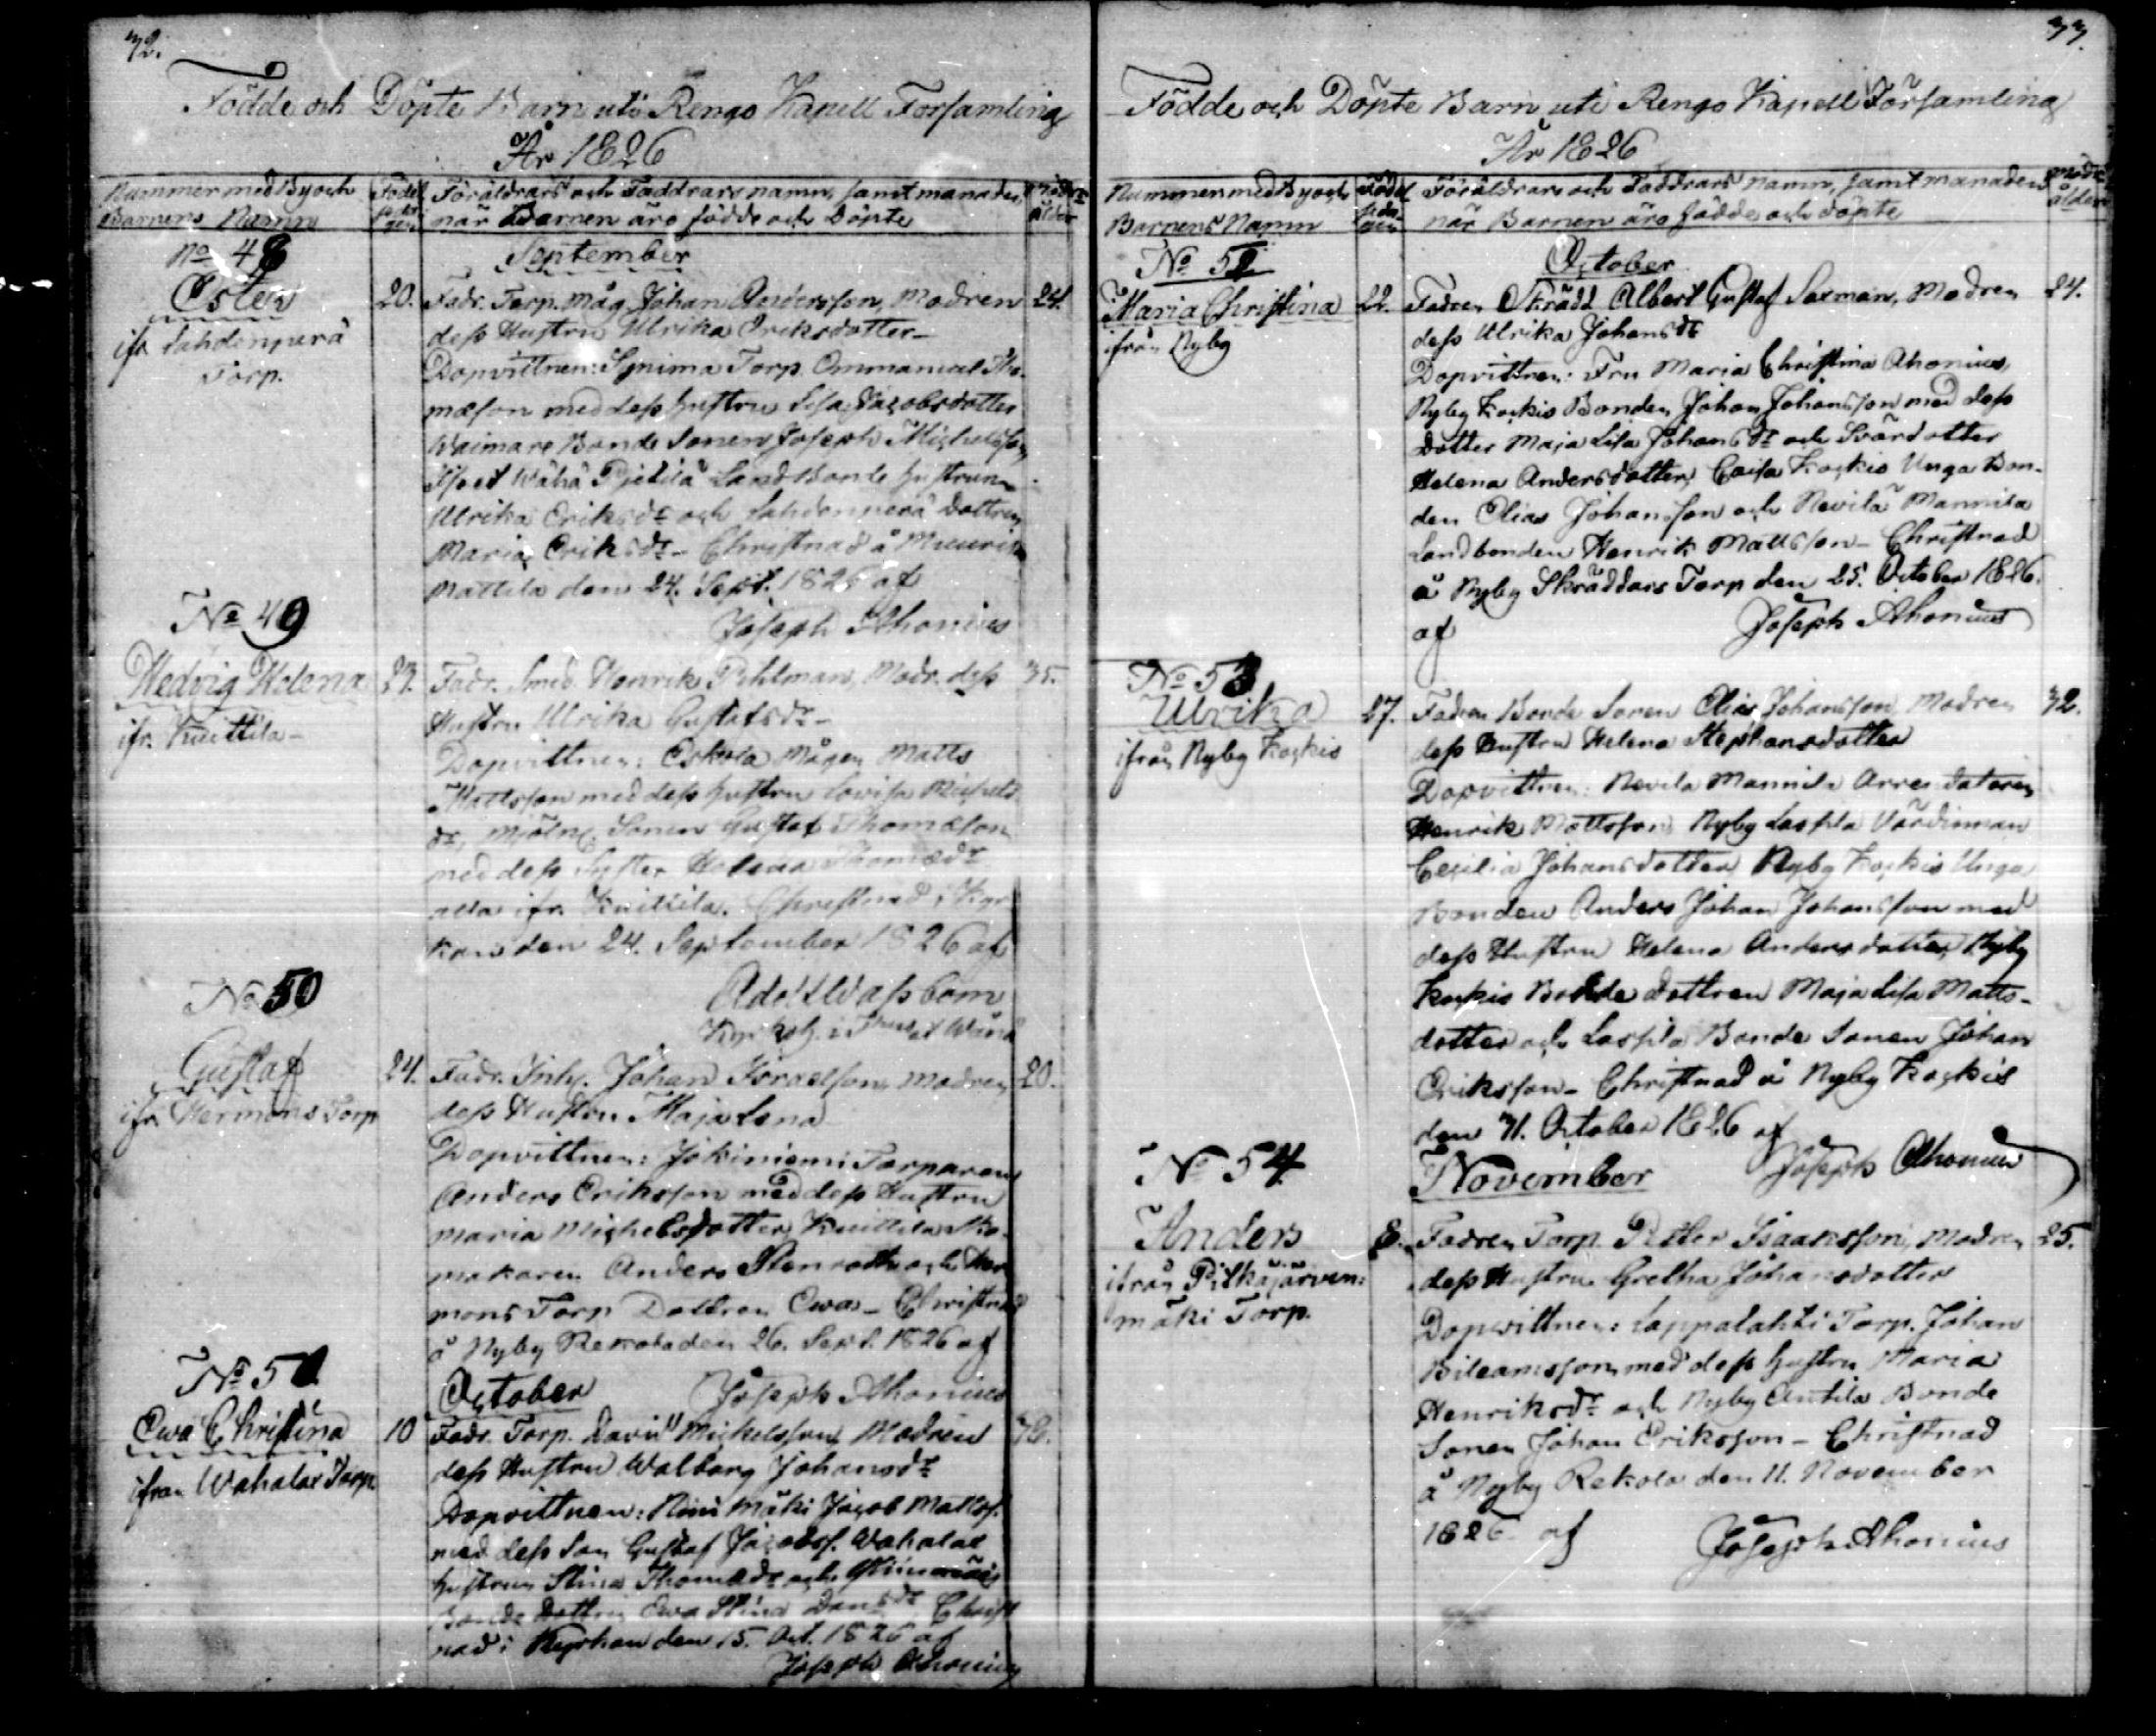 32.
Födde och Döpte Barn uti Rengo Kapell Församling
År 1826
Nummer med By och Barnens Namn
Födel sedagen
Föräldrars och Faddrars namn, samt månaden när Barnen äro födde och Döpte
Modrens ålder
September
No 48
Ester
ifr. Lahdenperä
Torp.
20.
Fadr. Torp. måg Johan Andersson, Modren
24.
dess Hustru Ulrika Eriksdotter
Dopvittnen: Torp. Emmanuel Tho-
mæson med dess hustru Lisa Jacobsdotter
Bonde Sonen Joseph Michelsson
Wähä Pietilä Landbonde hustrun
Ulrika Eriksdr och Lahdenperä dottren
Maria Eriksdr - Christnad å
Mattila den 24. Sept. 1826 af
Joseph Ahonius
No 49
Hedvig Helena
ifr. Kuittila
23.
Fadr. Smed. Henrik Pihlman, Modr. dess
35.
Hustru Ulrika Gustafsdr
Dopvittnen: Eskola Mågen Matts
Mattsson med dess hustru Lovisa Michels
dr, Mjöln. Sonen Gustaf Thomæson
med dess Syster Helena Thomædr
alla ifr. Kuittila. Christnad i Kyr-
kan den 24. September 1826 af
Adolf Wassbom
No 50
Gustaf
ifr. Hermons Torp
24.
Fadr. Inh. Johan Israelsson, Modren
20.
dess Hustru Maja Lena
Dopvittnen: Jokiniemi Torparen
Anders Eriksson med dess Hustru
Maria Michelsdotter, Kuittila Sko-
makaren Anders Stenroth och Her-
mons Torp Dottren Ewa - Christnad
å Nyby Rekola den 26. Sept. 1826 af
Joseph Ahonius
October
No 51
Ewa Christina
ifrån Wahalax Torp
10
Fadr. Torp. David Mickelsson, Modren
38.
dess Hustru Walborg Johansdr
Dopvittnen: Niinimäki Jacob Mattss.
med dess Son Gustaf Jacobss. Wahalax
hustrun Stina Thomædr och
Bonde Dottren Ewa Stina Christ-
nad i Kyrkan den 15. Oct. 1826 af
Joseph Ahonius
33.
Födde och Döpte Barn uti Rengo Kapell Församling
År 1826
Nummer med By och Barnens Namn
Födel sedagen
Föräldrars och Faddrars namn, samt månaden när Barnen äro födde och döpte
Modrens ålder
October
No 52
Maria Christina
ifrån Nyby
22.
Fadren Skrädd. Albert Gustaf Saxman, Modren
24.
dess Ulrika Johansdr
Dopvittnen: Fru Maria Christina Ahonius,
Nyby Kockis Bonden Johan Johansson med dess
dotter Maja Lisa Johansdr och Svärdotter
Helena Andersdotter, Kockis Unga Bon-
den Elias Johansson och Nevilä Mannila
Landbonden Henrik Mattsson - Christnad
å Nyby Skräddars Torp den 25. October 1826.
af
Joseph Ahonius
No 53
Ulrika
ifrån Nyby Kockis
27.
Fadren Bonde Sonen Elias Johansson, Modren
32.
dess Hustru Helena Stephansdotter
Dopvittnen: Nevila Mannila Arrendatoren
Henrik Mattsson, Nyby Laspila Värdinnan
Cecilia Johansdotter, Nyby Kockis Unga
Bonden Anders Johan Johansson med
dess Hustru Helena Andersdotter, Nyby
Kockis Bonde dottren Maja Lisa Matts-
dotter och Laspila Bonde Sonen Johan
Eriksson - Christnad å Nyby Kockis
den 31. October 1826 af
Joseph Ahonius
November
No 54
Anders
ifrån Pitkäjärven-
mäki Torp.
8.
Fadren Torp. Petter Isaaksson, Modren
25.
dess Hustru Gretha Johansdotter
Dopvittnen: Lappalahti Torp. Johan
Bileamsson med dess hustru Maria
Henriksdr och Nyby Antila Bonde
Sonen Johan Eriksson - Christnad
å Nyby Rekola den 11. November
1826 af
Joseph Ahonius